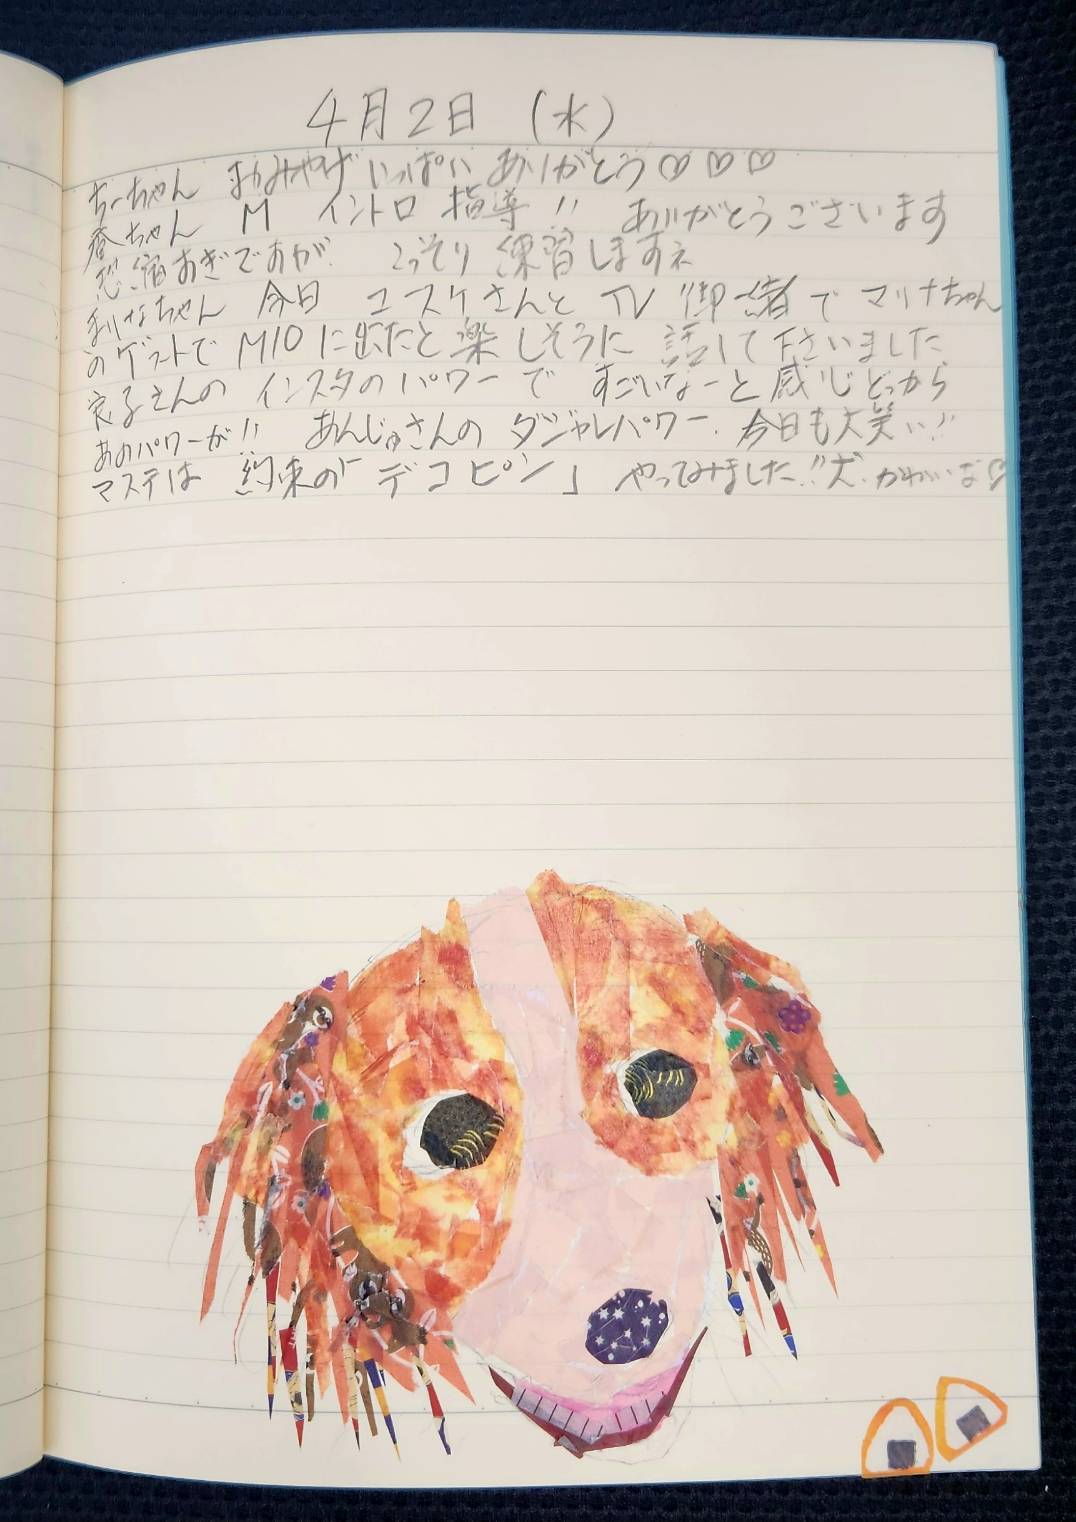 4月2日 (水)
ちーちゃん おみやげ いっぱい ありがとう♡♡♡
春ちゃん M イントロ 指導!! ありがとうございます
恐縮すぎですが こっそり 練習しますネ
まりなちゃん 今日 ユースケさんと TV 御一緒で マリナちゃん
のゲストで M10に出たと楽しそうに 話して下さいました
良子さんの インスタのパワーで すごいなーと感じどっから
あのパワーが!! あんじゅさんの ダジャレパワー、今日も大笑い!!
マステは 約束の「デコピン」 やってみました!!犬、かわいいな♡